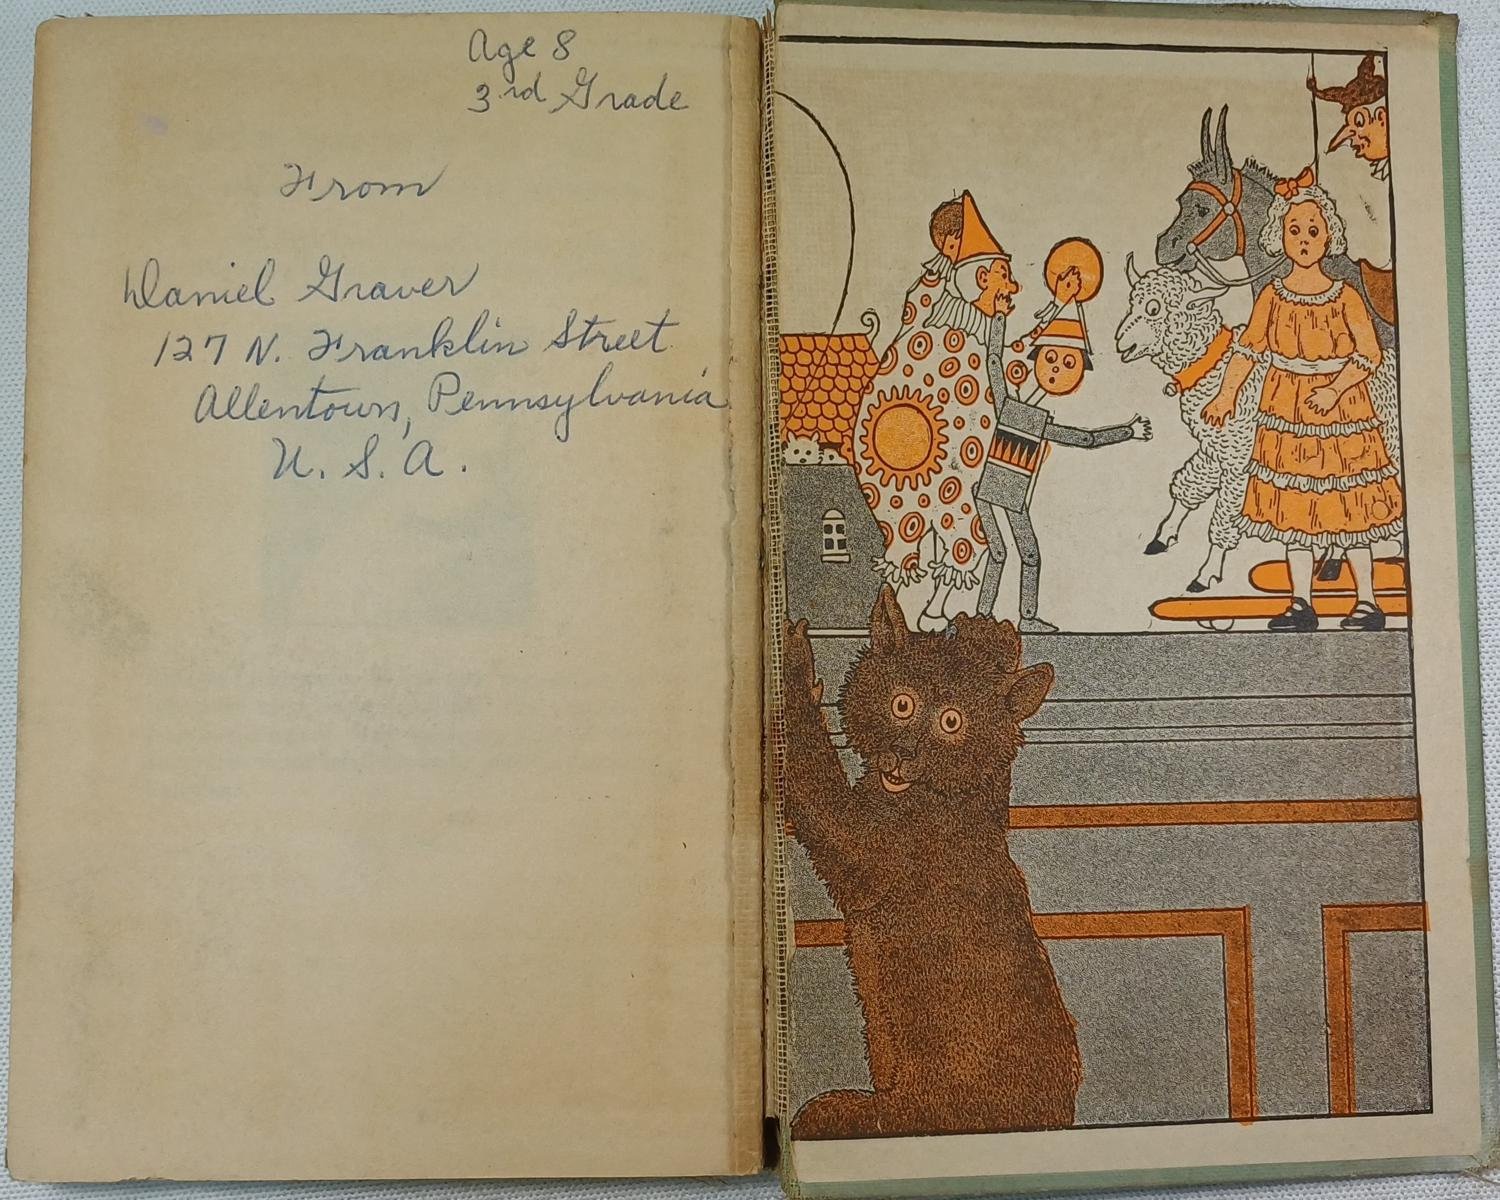 Age 8
3rd Grade
From
Daniel Graver
127 N. Franklin Street
Allentown, Pennsylvania
U. S. A.